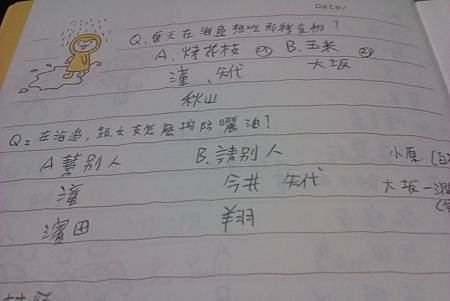 Date/
Q1 夏天在海邊想吃那種食物?
A. 烤花枝 B. 玉米
矢代 大坂
秋山
Q2 在海邊,跟女友怎麼擦防曬油?
A 幫別人 B. 請別人 小原
今井 矢代 大坂
濱田 翔